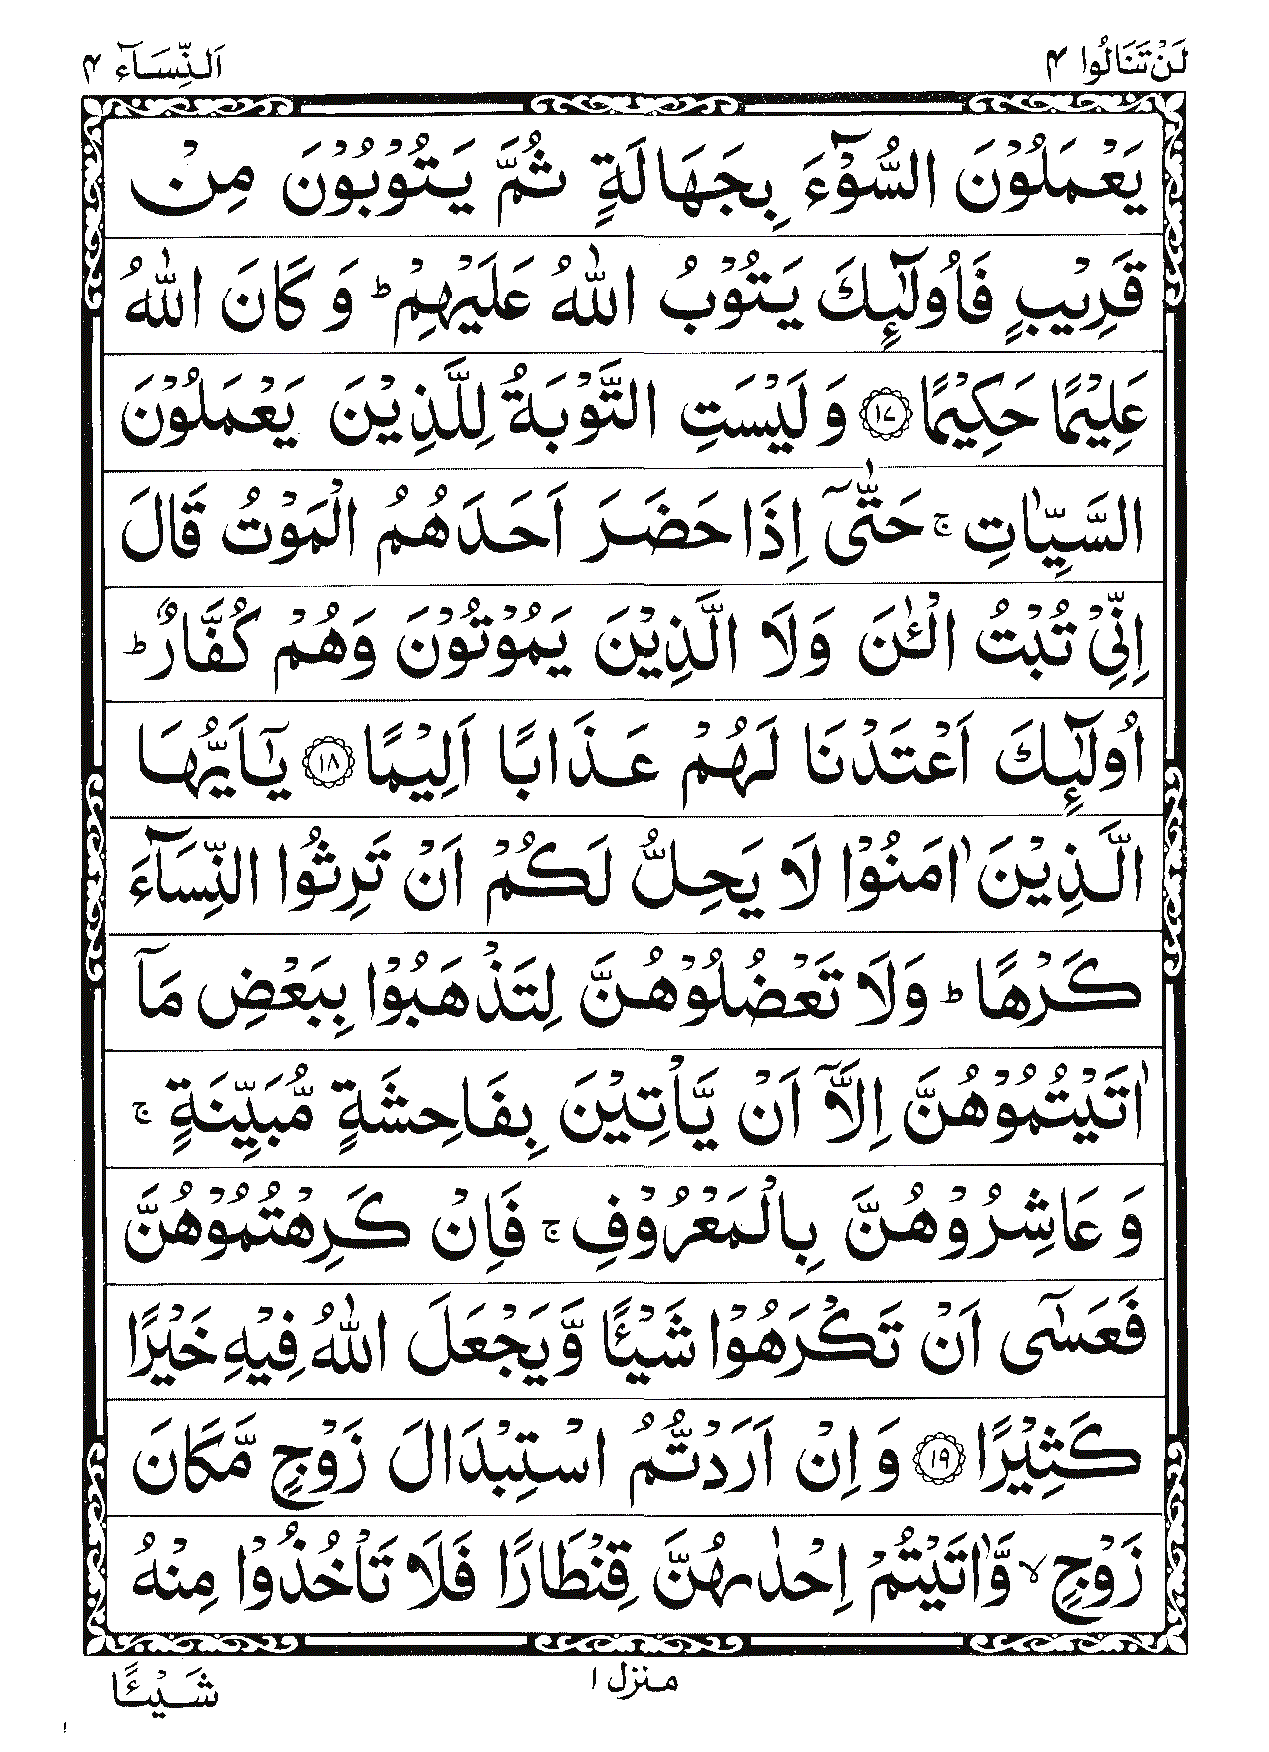 لَنْ تَنَالُوا ۴ اَلنِّسَآء ۴
يَعْمَلُوْنَ السُّوْٓءَ بِجَهَالَةٍ ثُمَّ يَتُوْبُوْنَ مِنْ
قَرِيْبٍ فَاُولٰٓئِكَ يَتُوْبُ اللّٰهُ عَلَيْهِمْ ؕ وَ كَانَ اللّٰهُ
عَلِيْمًا حَكِيْمًا ﴿۱۷﴾ وَ لَيْسَتِ التَّوْبَةُ لِلَّذِيْنَ يَعْمَلُوْنَ
السَّيِّاٰتِ ۚ حَتّٰٓى اِذَا حَضَرَ اَحَدَهُمُ الْمَوْتُ قَالَ
اِنِّيْ تُبْتُ الْـٰٔنَ وَلَا الَّذِيْنَ يَمُوْتُوْنَ وَهُمْ كُفَّارٌ ؕ
اُولٰٓئِكَ اَعْتَدْنَا لَهُمْ عَذَابًا اَلِيْمًا ﴿۱۸﴾ يٰٓاَيُّهَا
الَّذِيْنَ اٰمَنُوْا لَا يَحِلُّ لَكُمْ اَنْ تَرِثُوا النِّسَآءَ
كَرْهًا ؕ وَلَا تَعْضُلُوْهُنَّ لِتَذْهَبُوْا بِبَعْضِ مَآ
اٰتَيْتُمُوْهُنَّ اِلَّآ اَنْ يَّاْتِيْنَ بِفَاحِشَةٍ مُّبَيِّنَةٍ ۚ
وَ عَاشِرُوْهُنَّ بِالْمَعْرُوْفِ ۚ فَاِنْ كَرِهْتُمُوْهُنَّ
فَعَسٰٓى اَنْ تَكْرَهُوْا شَيْـًٔا وَّيَجْعَلَ اللّٰهُ فِيْهِ خَيْرًا
كَثِيْرًا ﴿۱۹﴾ وَ اِنْ اَرَدْتُّمُ اسْتِبْدَالَ زَوْجٍ مَّكَانَ
زَوْجٍ ۙ وَّاٰتَيْتُمْ اِحْدٰىهُنَّ قِنْطَارًا فَلَا تَاْخُذُوْا مِنْهُ
منزل ۱
شَيْـًٔا